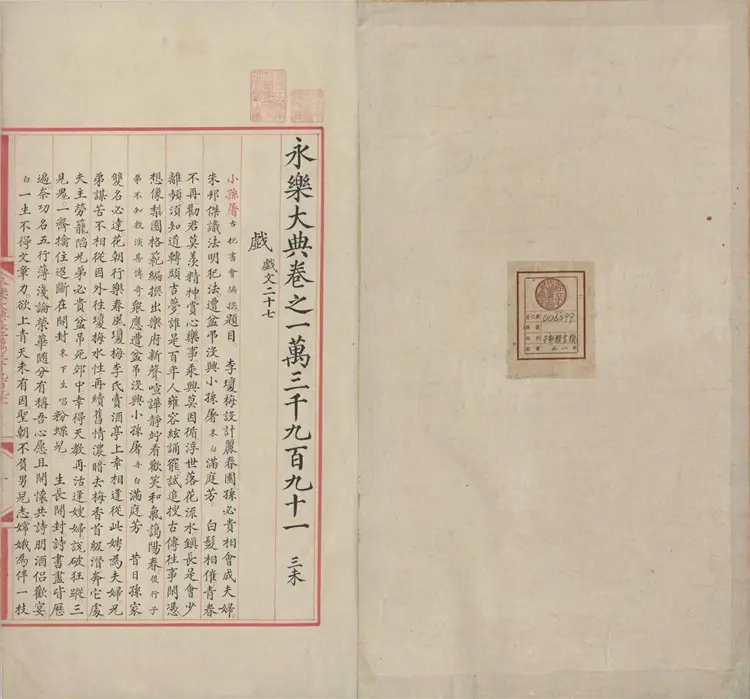 永樂大典卷之一萬三千九百九十一 三未
戲 戲文二十七
小孫屠 古杭書會編撰 題目 李瓊梅設計麗春園孫必貴相會成夫婦
朱邦傑識法明犯法遭盆吊沒興小孫屠 末白 滿庭芳 白髮相催青春
不再勸君莫羡精神賞心樂事乘興莫因循浮世落花流水鎮長是會少
離頻須知道轉頭吉夢誰是百年人雍容絃誦罷試追搜古傳往事閒憑
想像梨園格範編撰出樂府新聲喧譁靜竚看歡笑和氣藹陽春 後行子
弟不知敷演甚傳奇 衆應遭盆吊沒興小孫屠 再白 滿庭芳 昔日孫家
雙名必達花朝行樂春風瓊梅李氏賣酒亭上幸相逢從此娉為夫婦兄
弟謀苦不相從因外往瓊梅水性再續舊情濃暗去梅香首級潛奔它處
夫主勞籠陷兄弟必貴盆吊死郊中幸得天教再活逢嫂婦説破狂蹤三
見鬼一齊擒住迢斷在開封 末下生唱 粉蝶兒 生長開封詩書盡皆歷
遍奈功名五行薄淺論榮華隨分有稱吾心愿且開懷共詩朋酒侶歡宴
白 一生不得文章力欲上青天未有因聖朝不負男兒志嫦娥為伴一枝
006899